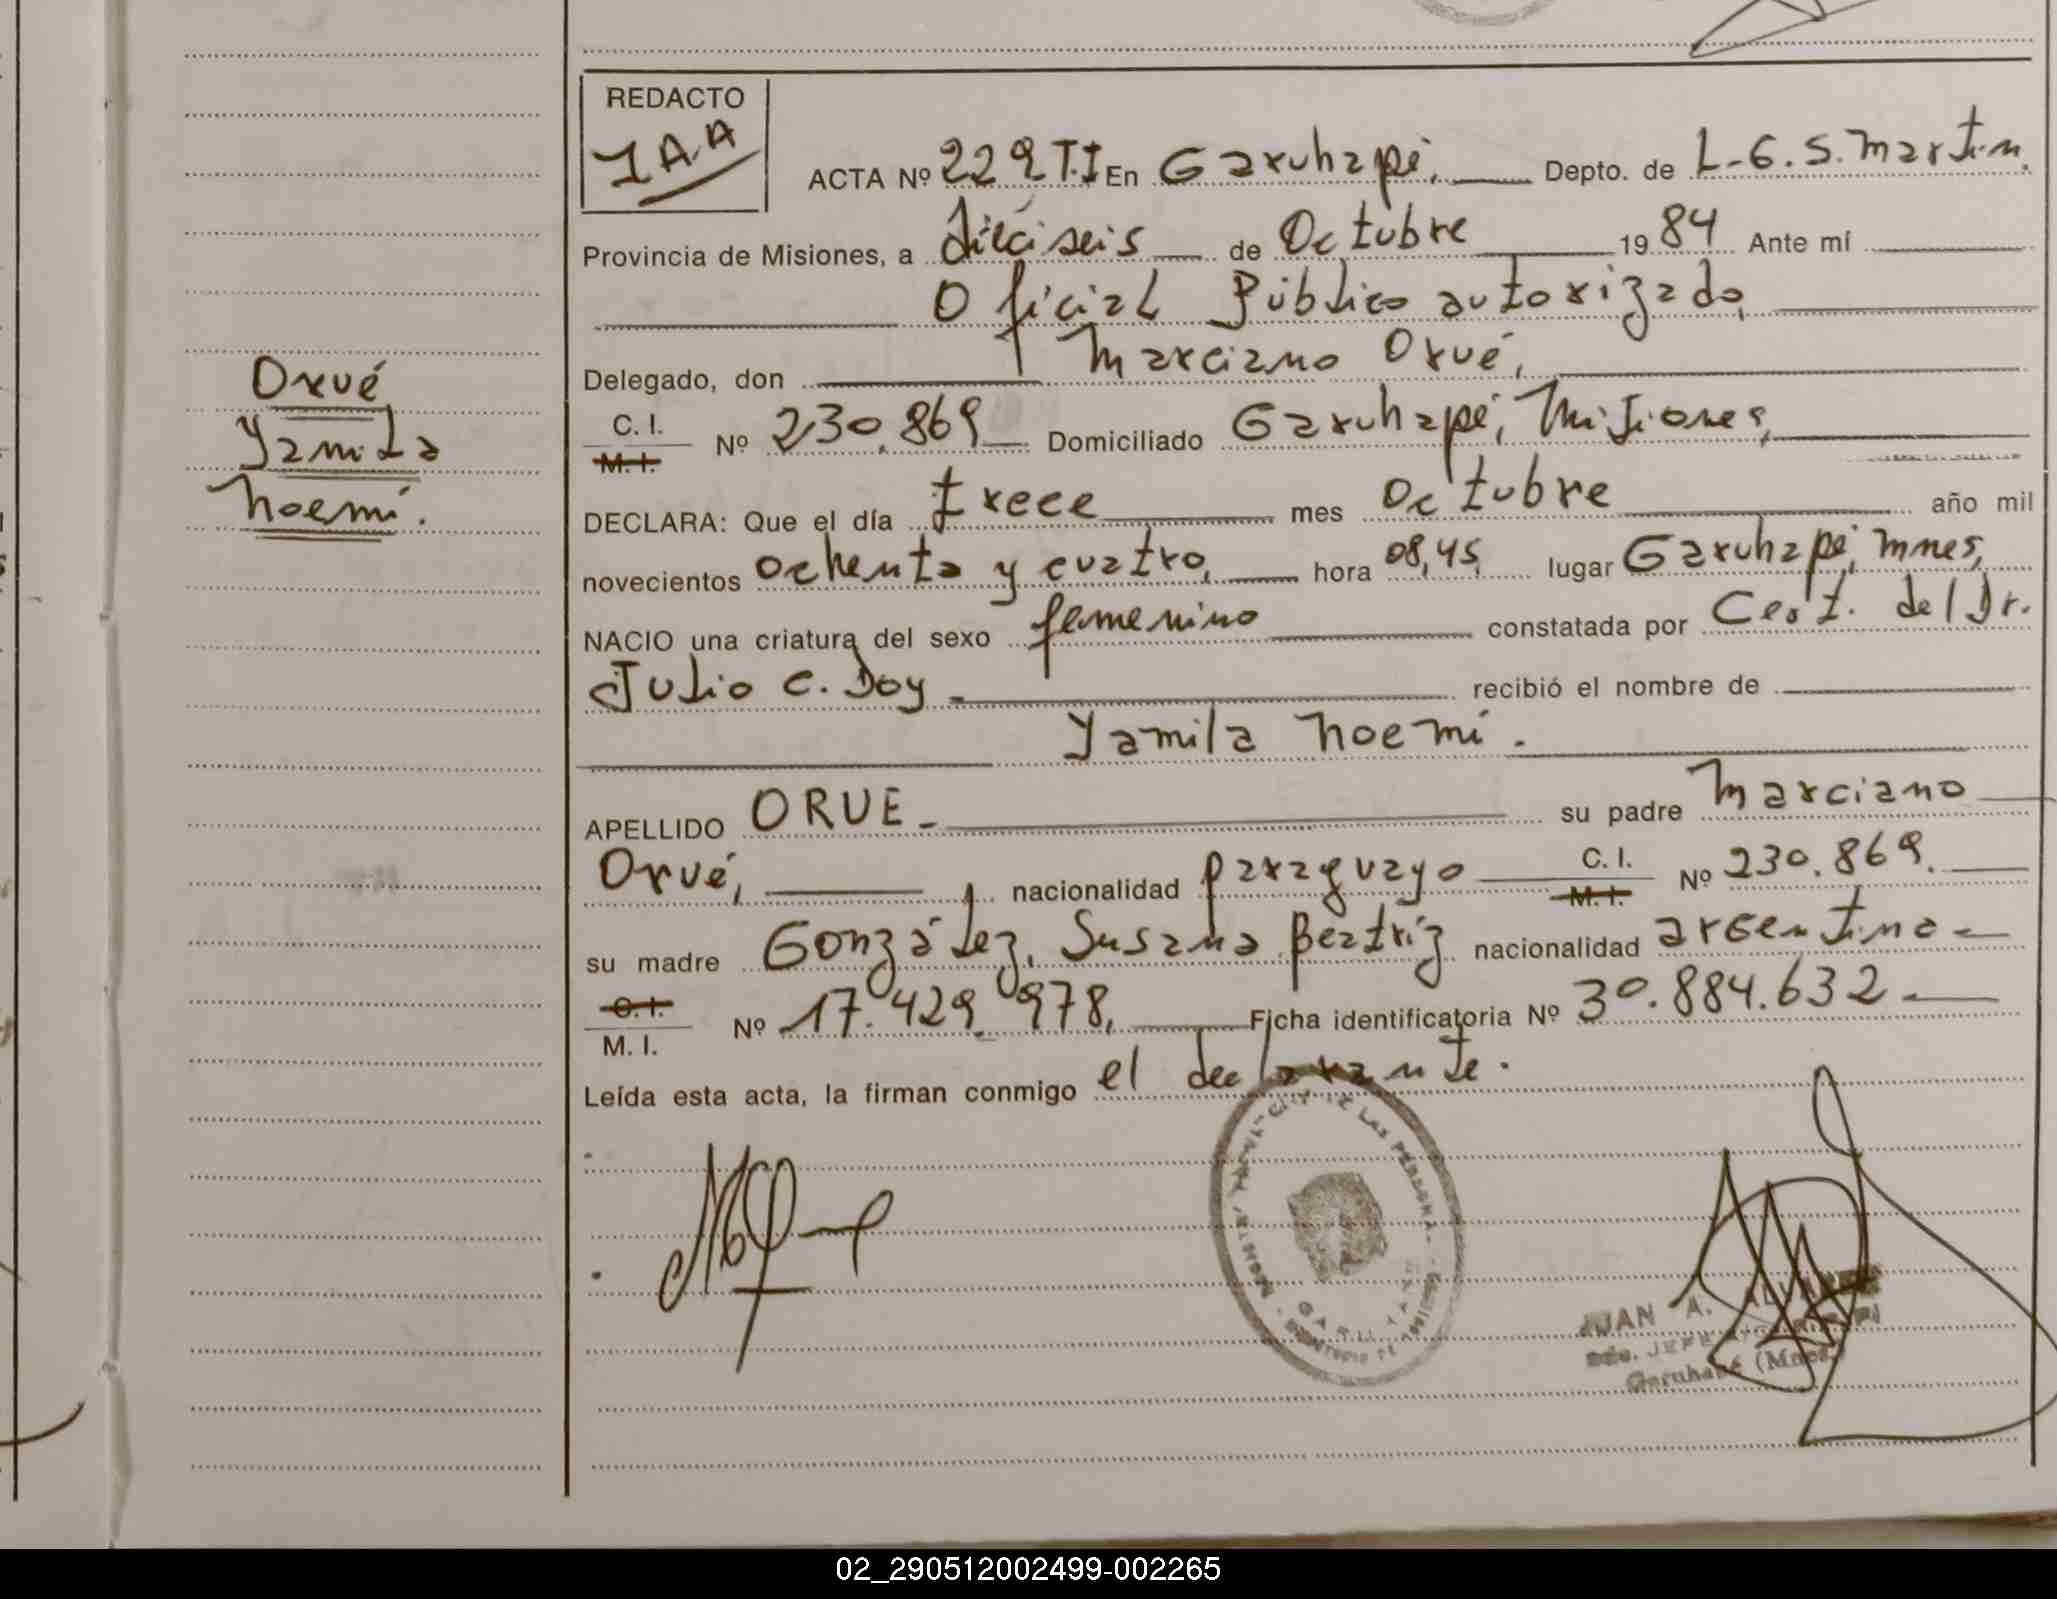 REDACTO
JAA
ACTA Nº 229 T.I En Garuhapé, Depto. de L.G.S.Martin.
Provincia de Misiones, a dieciseis de Octubre 1984 Ante mí
Oficial Público autorizado,
Delegado, don Marciano Orué,
C. I. M. I. Nº 230.869 Domiciliado Garuhapé, Misiones,
DECLARA: Que el día trece mes Octubre año mil
novecientos ochenta y cuatro, hora 08,45, lugar Garuhapé, Mnes,
NACIO una criatura del sexo femenino constatada por Cert. del Dr.
Julio C. Doy recibió el nombre de
Yamila Noemí.
APELLIDO ORUE su padre Marciano
Orué, nacionalidad paraguayo C. I. M. I. Nº 230.869.
su madre González, Susana Beatríz nacionalidad argentina
C. I. M. I. Nº 17.429.978, Ficha identificatoria Nº 30.884.632
Leída esta acta, la firman conmigo el declarante.
Orué
Yamila
Noemí.
DE LAS PERSONAS
JUAN A.
Garuhapé (Mnes.)
02_290512002499-002265